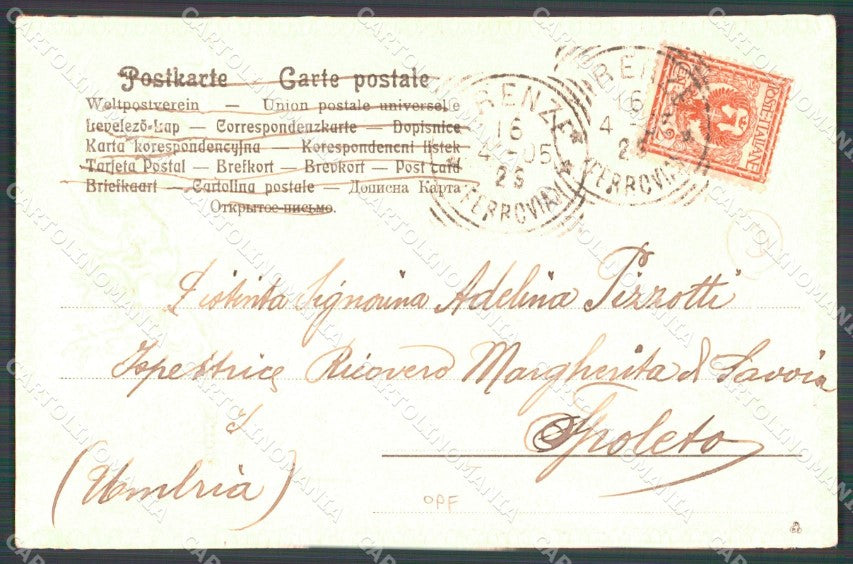 Postkarte — Carte postale
Weltpostverein — Union postale universelle
Levelező-Lap — Correspondenzkarte — Dopisnice
Karta korespondencyjna — Korespondencni listek
Tarjeta Postal — Brefkort — Brevkort — Post card
Briefkaart — Cartolina postale — Дописна Карта
Открытое письмо.
FIRENZE
16
4-05
2S
FERROVIA
FIRENZE
16
4
2S
FERROVIA
POSTE ITALIANE
Distinta Signorina Adelina Pizzotti
Ispettrice Ricovero Margherita di Savoia
Spoleto
(Umbria)
OPF
CARTOLINOMANIA